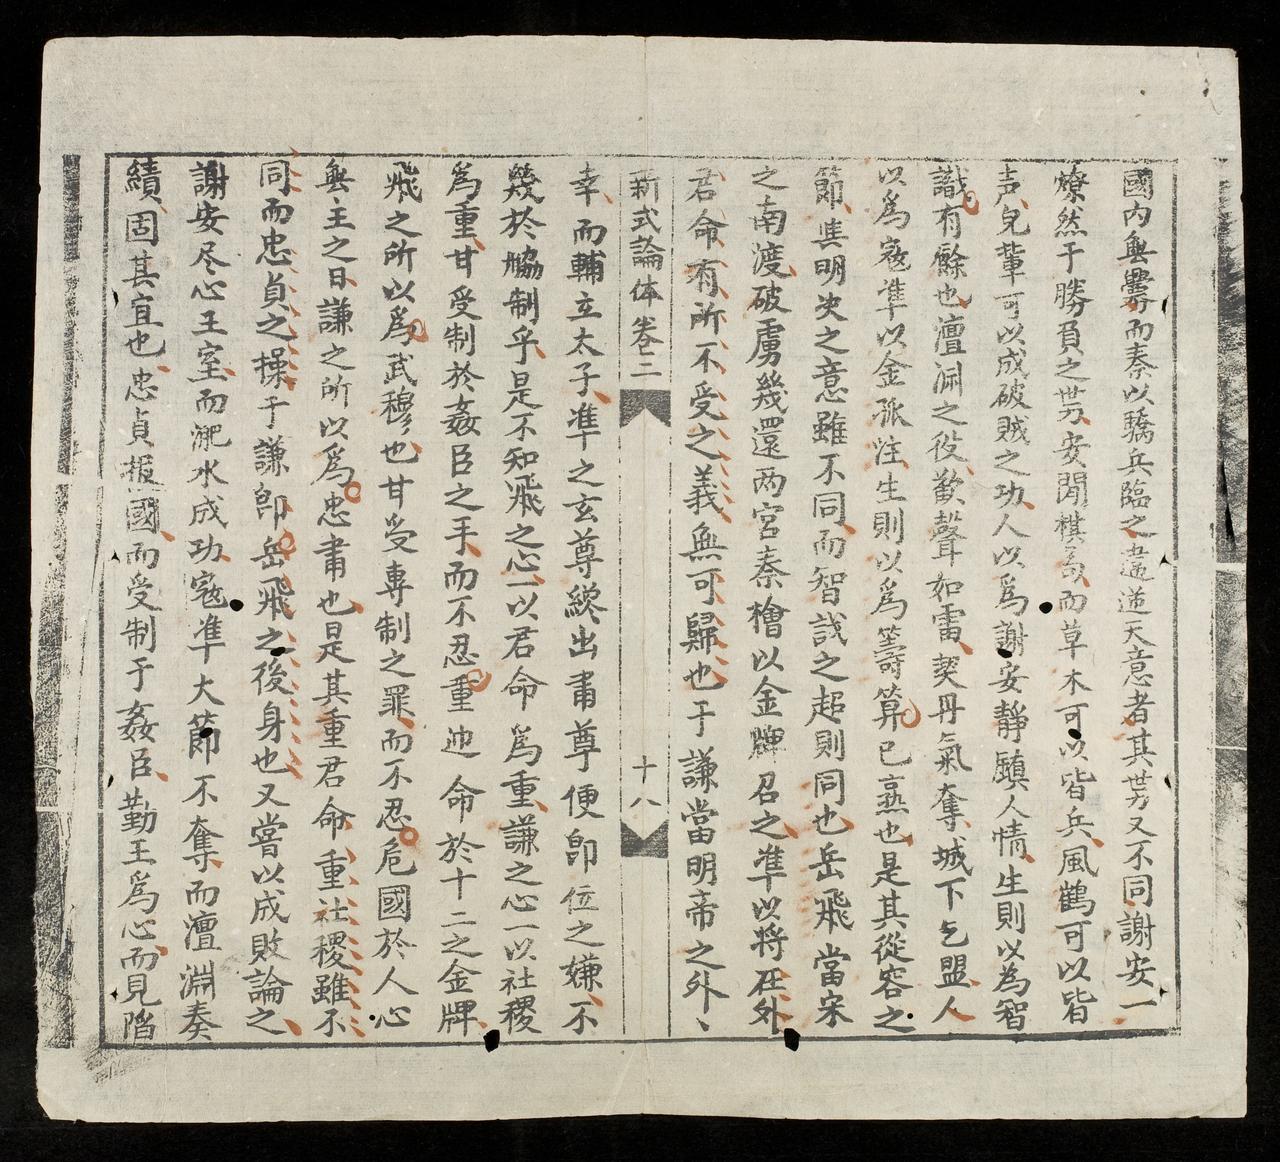 國内無釁而秦以驕兵臨之違逆天意者其势又不同謝安一
燎然于勝負之势安閒棋局而草木可以皆兵風鶴可以皆
声皃輩可以成破贼之功人以爲謝安靜鎮人情生則以為智
識有餘也澶淵之役歡聲如雷契丹氣奪城下乞盟人
以爲寇準以金孤注生則以爲籌算已熹也是其從容之
節與明决之意雖不同而智誠之超則同也岳飛當宋
之南渡破虜幾還两宮秦檜以金牌召之準以將在外
君命有所不受之義無可歸也于謙當明帝之外丶
新式論体 卷二 十八
幸而輔立太子準之玄尊縱出肅尊便即位之嫌不
幾於脇制乎是不知飛之心一以君命爲重謙之心一以社稷
爲重甘受制於姦臣之手而不忍重迆命於十二之金牌
飛之所以爲武穆也甘受專制之罪而不忍危國於人心
無主之日謙之所以爲忠肅也是其重君命重社稷雖不
同而忠貞之操于謙即岳飛之後身也又當以成敗論之
謝安尽心王室而淝水成功寇準大節不奪而澶淵奏
績固其宜也忠貞报國而受制于姦臣勤王爲心而見陷